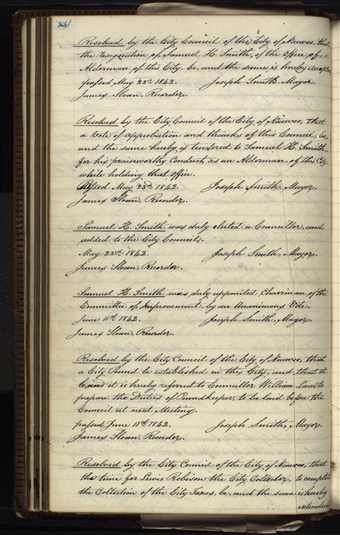 84
Resolved by the City Council of the City of Nauvoo, that
the resignation of Samuel H. Smith, of the Office, of
Alderman, of this City be, and the same is hereby accepted
passed May 23rd 1842. Joseph Smith Mayor.
James Sloan, Recorder.
Resolved by the City Council of the City of Nauvoo, that
a Vote of approbation and thanks of this Council, be,
and the same hereby is tendered to Samuel H. Smith,
for his praiseworthy Conduct, as an Alderman, of this City,
while holding that Office.
passed May 23rd 1842. Joseph Smith, Mayor.
James Sloan Recorder.
Samuel H. Smith was duly elected a Councillor, and
added to the City Council.
May 23rd 1842. Joseph Smith Mayor.
James Sloan, Recorder.
Samuel H. Smith was duly appointed Chairman, of the
Committee of Improvement, by an Unanimous Vote.
June 11th 1842. Joseph Smith, Mayor.
James Sloan, Recorder.
Resolved by the City Council of the City of Nauvoo, that
a City Pound be established in this City, and that
it is hereby referred to Councillor William Law to
prepare the Duties of Poundkeeper, to be laid before the
Council at next Meeting.
passed June 11th 1842. Joseph Smith, Mayor.
James Sloan, Recorder.
Resolved by the City Council of the City, of Nauvoo, that
the time for Lewis Robison the City Collector, to complete
the Collection of the City Taxes, be, and the same is hereby
extended